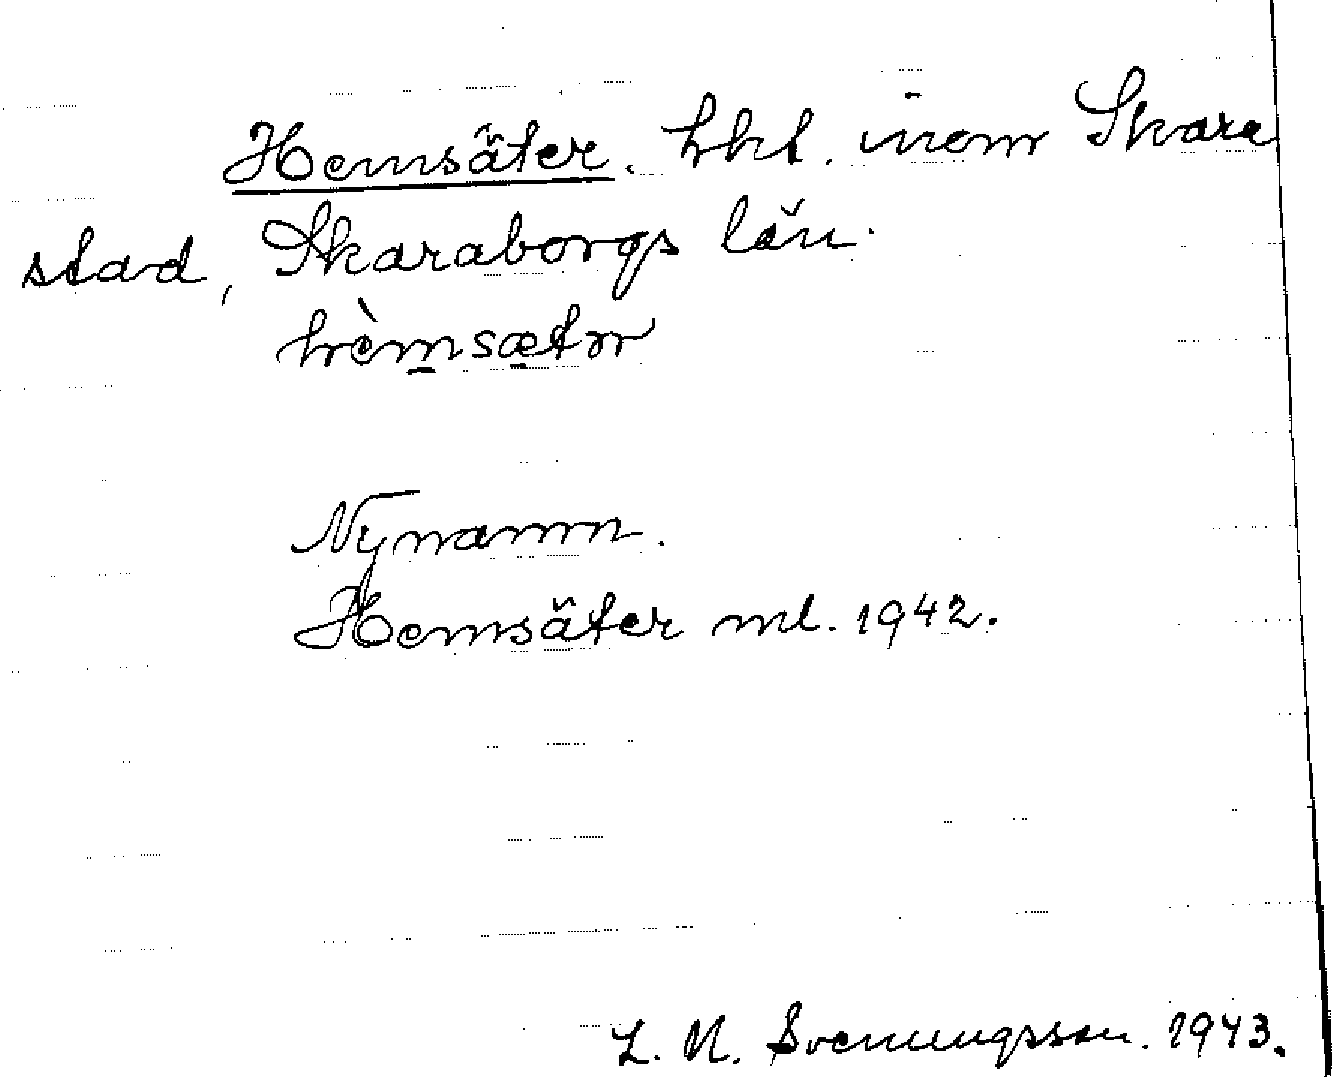 Hemsäter. hkl. inom Skara
stad, Skaraborgs län.
hèmsætr
Nynamn.
Hemsäter ml. 1942.
L. M. Svenungsson. 1943.